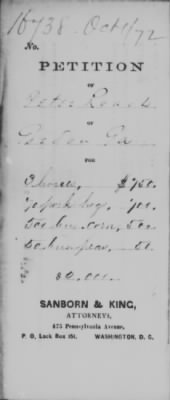 16738. Oct 1/72
No.
PETITION
OF
Peter
OF
Ga
FOR
3 horses, $ 750.
pork hog, 700.
500 bus. corn, 500
50 bus peas, 50
$2,000.
SANBORN & KING,
ATTORNEYS,
475 Pennsylvania Avenue,
P. O. Lock Box 151, WASHINGTON, D. C.